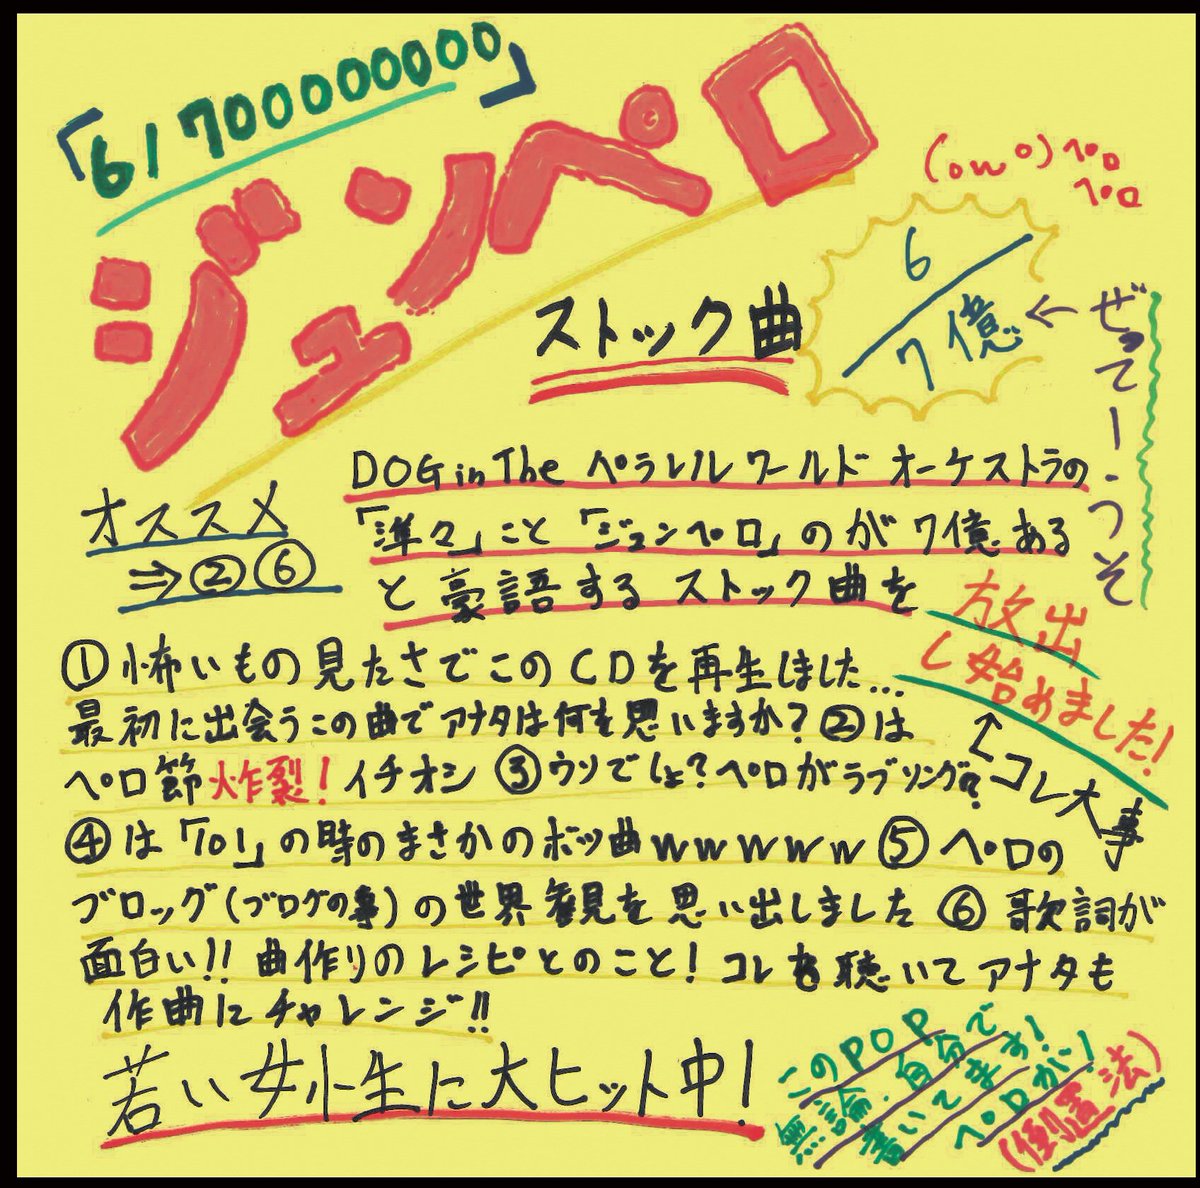 「6/700000000」
ジュンペロ
(ow°)ペロ
ペロ
ストック曲
6
7億
← ぜってー、うそ
DOG in The パラレルワールドオーケストラの
「準々」こと「ジュンペロ」のが7億ある
と豪語するストック曲を
放出
し始めました!
↑コレ大事
オススメ
⇒②⑥
①怖いもの見たさでこのCDを再生しました…
最初に出会うこの曲でアナタは何を思いますか?②は
ペロ節炸裂!イチオシ ③ウソでしょ?ペロがラブソング?
④は「701」の時のまさかのボツ曲wwwww⑤ペロの
ブロッグ(ブログの事)の世界観を思い出しました⑥歌詞が
面白い!!曲作りのレシピとのこと!コレを聴いてアナタも
作曲にチャレンジ!!
若い女性に大ヒット中!
このPOP
無論、自分で
書いてます!
ペロが!
(倒置法)